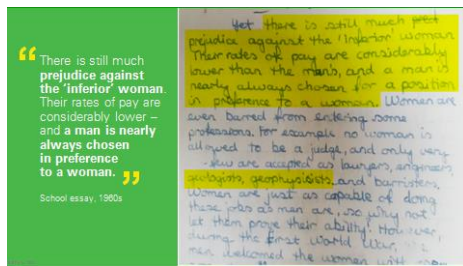 “ There is still much
prejudice against
the ‘inferior’ woman.
Their rates of pay are
considerably lower –
and a man is nearly
always chosen
in preference
to a woman. ”
School essay, 1960s
Yet there is still much
prejudice against the 'Inferior' woman
Their rates of pay are considerably
lower than the mans, and a man is
nearly always chosen for a position
in preference to a woman. Women are
even barred from entering some
professions. For example no woman is
allowed to be a judge, and only very
few are accepted as lawyers, engineers,
geologists, geophysicists, and barristers,
Women are just as capable of doing
these jobs as men are, so why not
let them prove their ability. However,
during the First World War,
men welcomed the women with